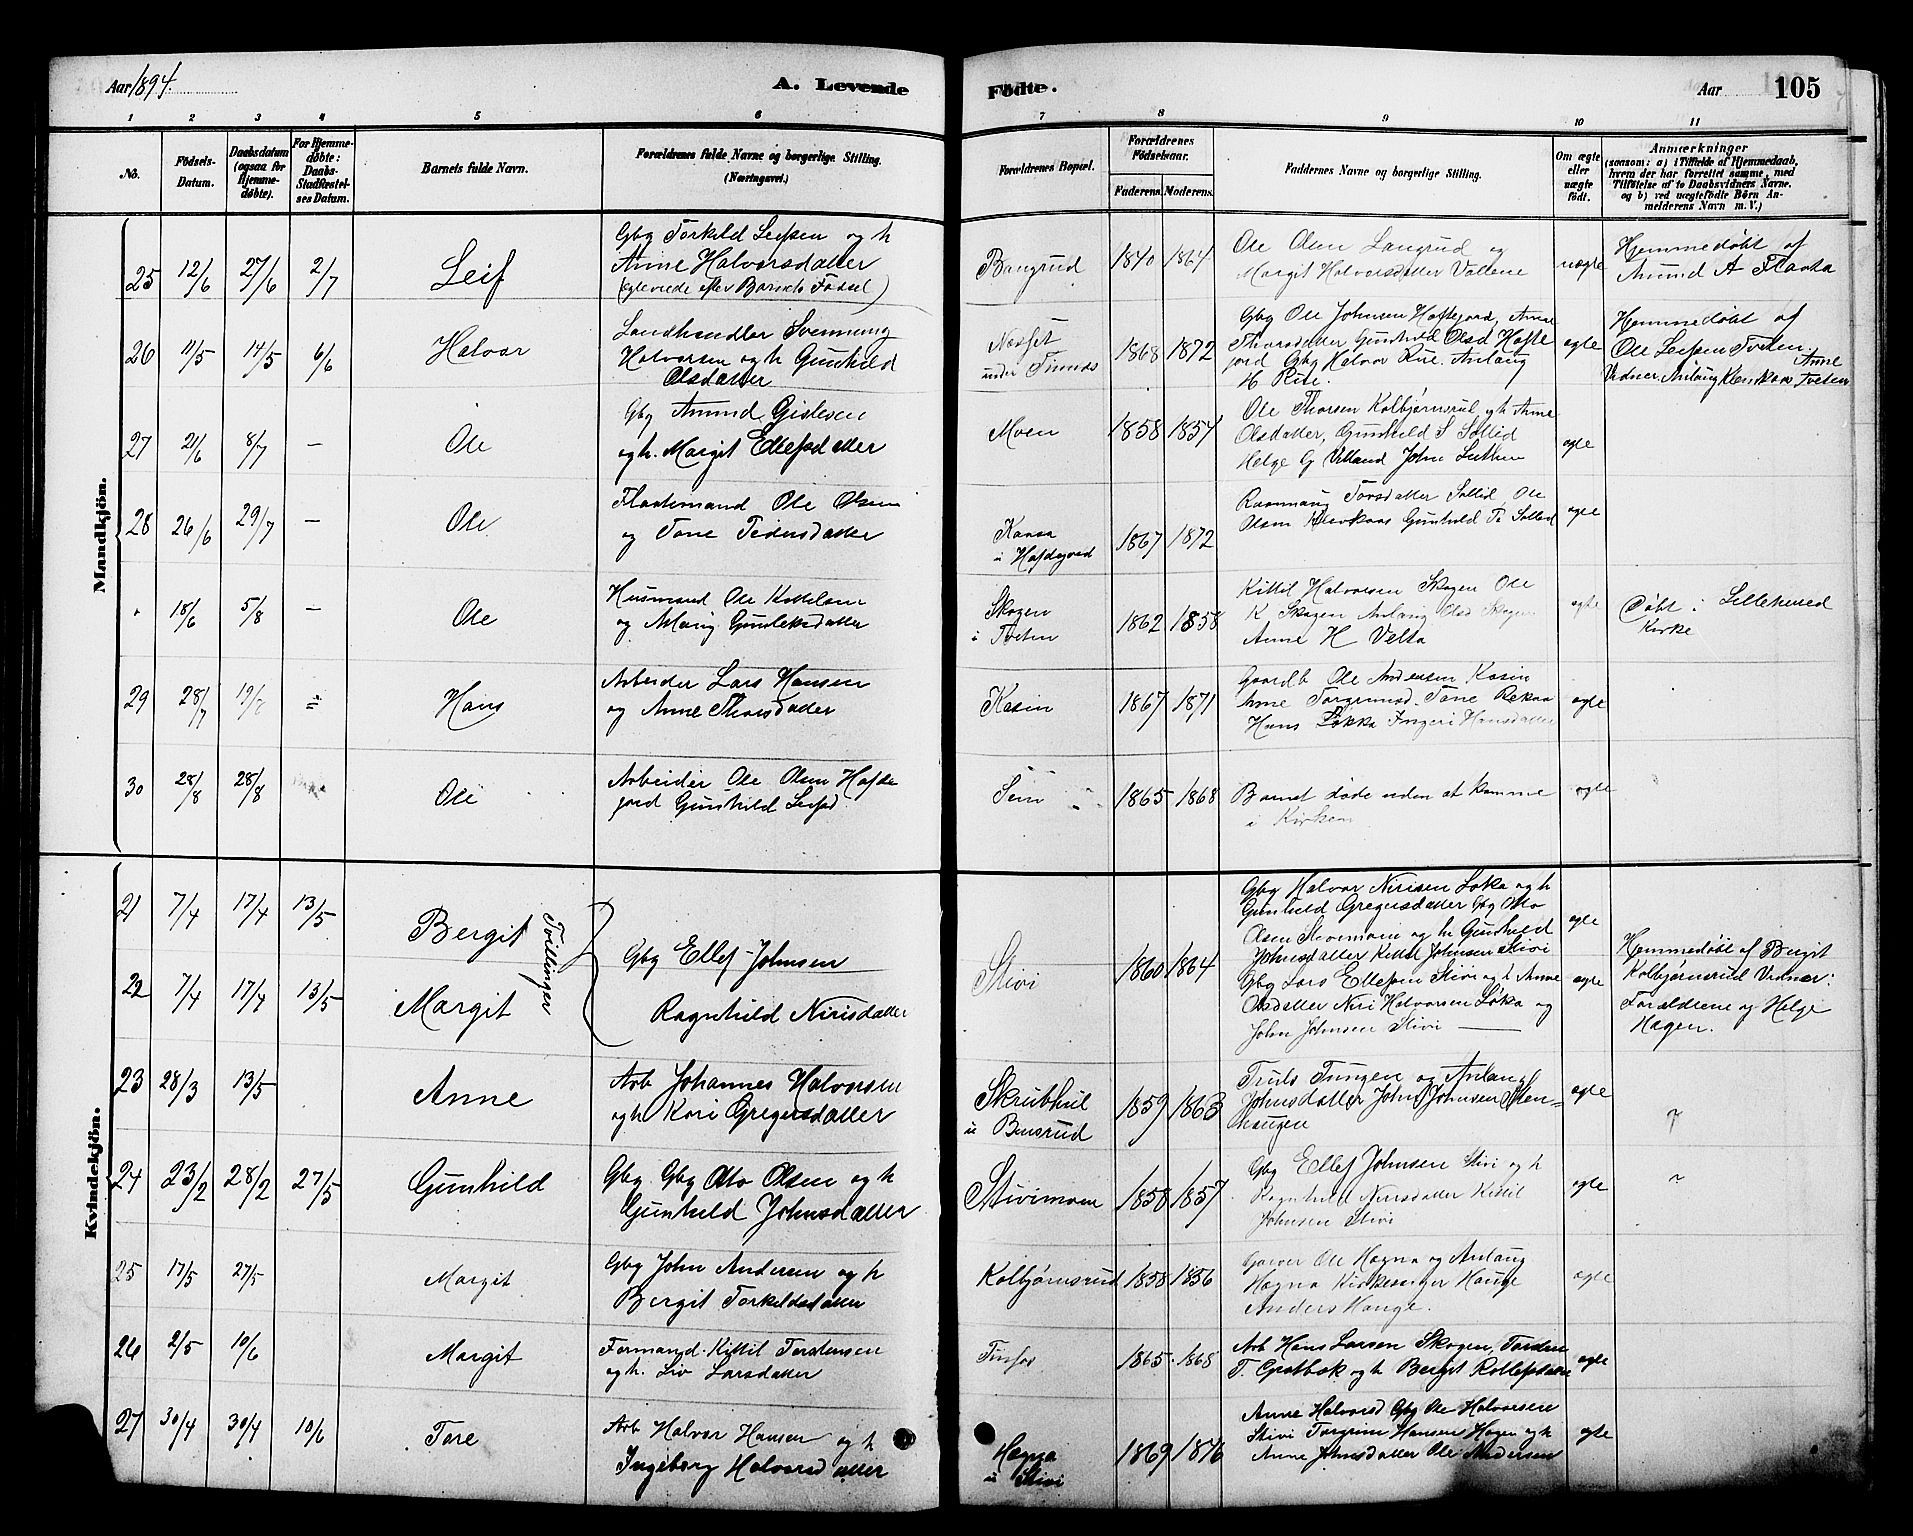 Aar 1894.
A. Levende
Fødte.
Aar
105
1 2 3 4 5 6 7 8 9 10 11
No.
Fødsels-
Datum.
Daabsdatum
(ogsaa for
Hjemme-
døbte).
For Hjemme-
døbte:
Daabs-
Stadfæstel-
ses Datum.
Barnets fulde Navn.
Forældrenes fulde Navne og borgerlige Stilling.
(Næringsvei.)
Forældrenes Bopæl.
Forældrenes
Fødselsaar.
Faderens. Moderens.
Faddernes Navne og borgerlige Stilling.
Om ægte
eller
uægte
født.
Anmærkninger
(saasom: a) i Tilfælde af Hjemmedaab,
hvem der har forrettet samme, med
Tilføielse af to Daabsvidners Navne.
og b) ved uægtefødte Børn An-
melderens Navn m. V.)
Mandkjön.
25 12/6 27/6 2/7
Leif
Gbg Torkild Leifsen og h
Anne Halvorsdatter
(egteviede efter Barnets Fødsel)
Bangrud
1840 1864
Ole Olsen Langrud og
Margit Halvorsdatter Vallene
uægte
Hjemmedøbt af
Amund A
26 11/5 14/5 6/6
Halvor
Landhandler Svennung
Halvorsen og h Gunhild
Olsdatter
Nesset
under
1868 1872
Gbg Ole Johnsen Haftegord, Anne
Thorsdatter Gunhild Olsd Hafte
jord Gbg Halvor Rue. Anlaug
H Rise.
egte
Hjemmedøbt af
Ole Leifsen Tveten.
Vidner. Anlaug Anne
Tveten
27 21/6 8/7 —
Ole
Gbg Amund Gislesen
og h. Margit Ellefsdatter
Moen
1858 1854
Ole Thorsen Kolbjørnsrud, og h Anne
Olsdatter, Gunhild S Sollid
Helge G Villand John
egte
28 26/6 29/7 —
Ole
Ole Olsen
og Tone
i Haftegord
1867 1872
Torsdatter Sollid, Ole
Olsen Gunhild T. Sollid
egte
18/6 5/8 —
Ole
Husmand Ole Kittelsen
og Aslaug Gunleksdatter
Skogen
i Tveten
1862 1858
Kittil Halvorsen Skogen Ole
K Skogen Anlaug Olsd Skogen
Anne H Velta
egte
Døbt i Lilleherred
Kirke
29 28/7 19/8
Hans
Arbeider Lars Hansen
og Anne Thorsdatter
Kasin
1867 1871
Gaardb Ole Andersen Kasin
Anne Torgrimsd. Tone
Hans Løkka Ingeri Hansdatter
egte
30 28/8 28/8
Ole
Arbeider Ole Olsen Hafte
jord Gunhild Leifsd.
Sem
1865 1868
Barnet døde uden at komme
i Kirken
egte
Kvindekjön.
21 7/4 17/4 13/5
Bergit
Tvillinger
Gbg Ellef Johnsen
Stivi
1860 1864
Gbg Halvor Nirisen Løka og h
Gunhild Gregersdatter Gbg Otto
Olsen Stivimoen og h Gunhild
Johnsdatter Kittil Johnsen Stivi
egte
22 7/4 17/4 13/5
Margit
Ragnhild Nirisdatter
Gbg Lars Ellefsen Stivi og h Anne
Olsdatter Niri Halvorsen Løka og
John Johnsen Stivi —
egte
Hjemmedøbt af Bergit
Kolbjørnsrud Vidner:
Forældrene og Helge
Hagen.
23 28/3 13/5
Anne
Arb Johannes Halvorsen
og h Kari Gregersdatter
Skrubhul
u Bensrud
1859 1863
Truls Tungen og Anlaug
Johnsdatter John Johnsen Sten=
haugen
egte
24 23/2 28/2 27/5
Gunhild
Gbg. Gbg Otto Olsen og h
Gunhild Johnsdatter
Stivimoen
1858 1857
Gbg Ellef Johnsen Stivi og h
Ragnhild Nirisdatter Kittil
Johnsen Stivi
egte
25 17/5 27/5
Margit
Gbg John Andersen og h
Bergit Torkildsdatter
Kolbjørnsrud
1858 1856
Garver Ole Hagna og Anlaug
Hagna Kirkesanger Hauge
Anders Hauge.
egte
26 2/5 10/6
Margit
Formand. Kittil Torstensen
og h. Liv Larsdatter
Tinfos
1865. 1868
Arb Hans Larsen Skogen, Torsten
T. og h Bergit Rollefsdatter
egte
27 30/4 30/4 10/6
Tore
Arb Halvor Hansen og h
Ingeborg Halvorsdatter
Hagna
u Stivi
1869 1876
Anne Halvorsd Gbg Ole Halvorsen
Stivi Torgrim Hansen Hagen og h
Anne Johnsdatter Ole Andersen
egte